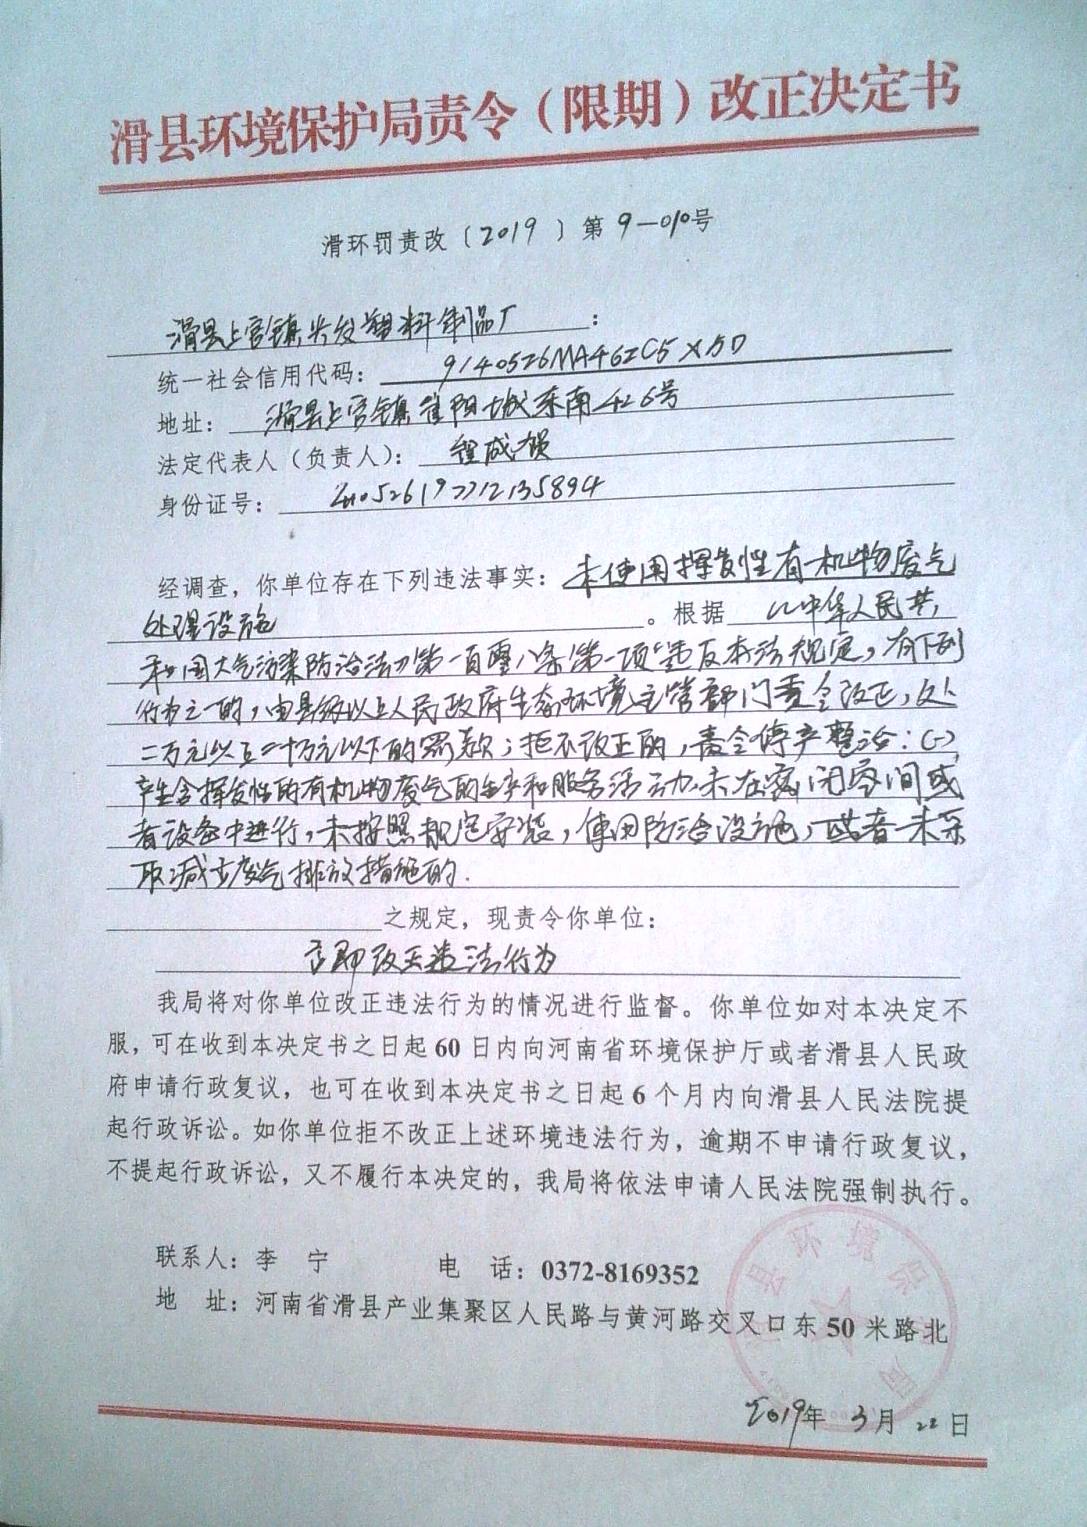 滑县环境保护局责令（限期）改正决定书
滑环罚责改〔2019〕第9-010号
滑县上官镇兴发塑料制品厂：
统一社会信用代码：
地址：滑县上官镇 东南426号
法定代表人（负责人）：程成贺
身份证号：
经调查，你单位存在下列违法事实：未使用挥发性有机物废气
处理设施。根据《中华人民共
和国大气污染防治法》第一百零八条第一项“违反本法规定，有下列
行为之一的，由县级以上人民政府生态环境主管部门责令改正，处
二万元以上二十万元以下的罚款；拒不改正的，责令停产整治：(一)
产生含挥发性的有机物废气的生产和服务活动，未在密闭空间或
者设备中进行，未按照规定安装，使用防治设施，或者未采
取减少废气排放措施的.
之规定，现责令你单位：
立即改正违法行为
我局将对你单位改正违法行为的情况进行监督。你单位如对本决定不
服，可在收到本决定书之日起60日内向河南省环境保护厅或者滑县人民政
府申请行政复议，也可在收到本决定书之日起6个月内向滑县人民法院提
起行政诉讼。如你单位拒不改正上述环境违法行为，逾期不申请行政复议，
不提起行政诉讼，又不履行本决定的，我局将依法申请人民法院强制执行。
联系人：李 宁 电 话：0372-8169352
地 址：河南省滑县产业集聚区人民路与黄河路交叉口东50米路北
滑县环境保护局
2019年3月22日